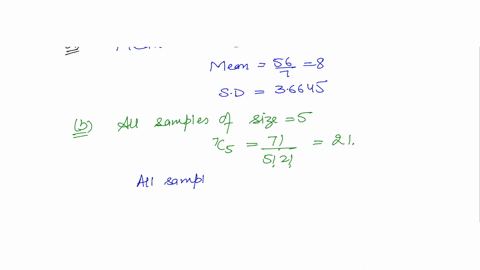 Mean = 56/7 = 8
S.D = 3.6645
(b) All samples of size = 5
7C5 = 7!/5!2! = 21.
All sampl